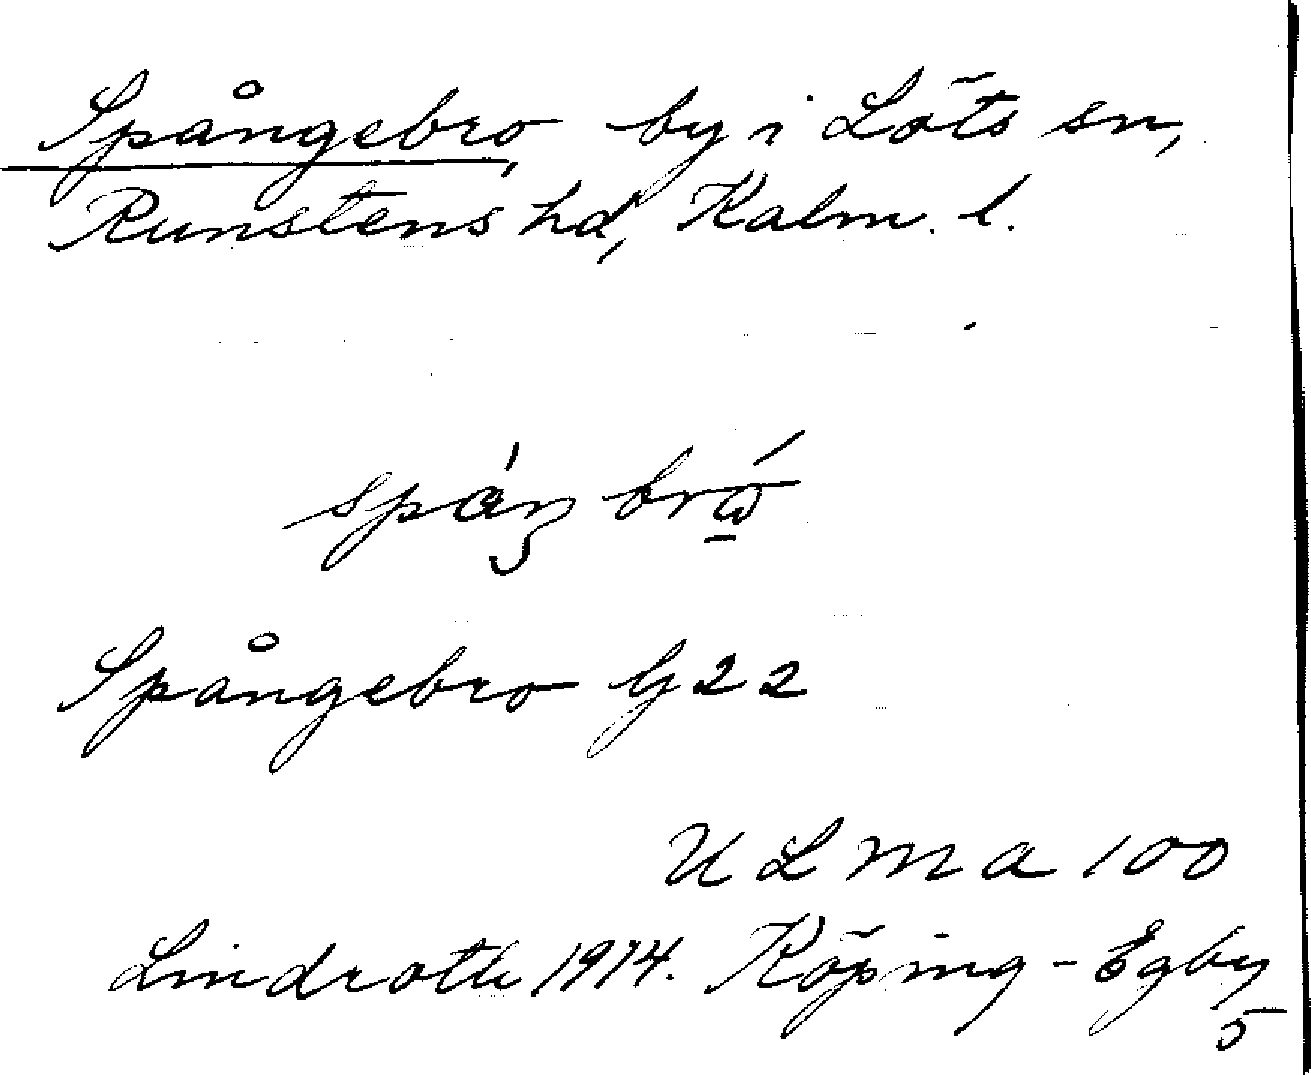 Spångebro, by i Löts sn,
Runstens hd, Kalm. l.
Spångebro G22
ULMA 100
Lindroth 1914. Köping - Egby
5